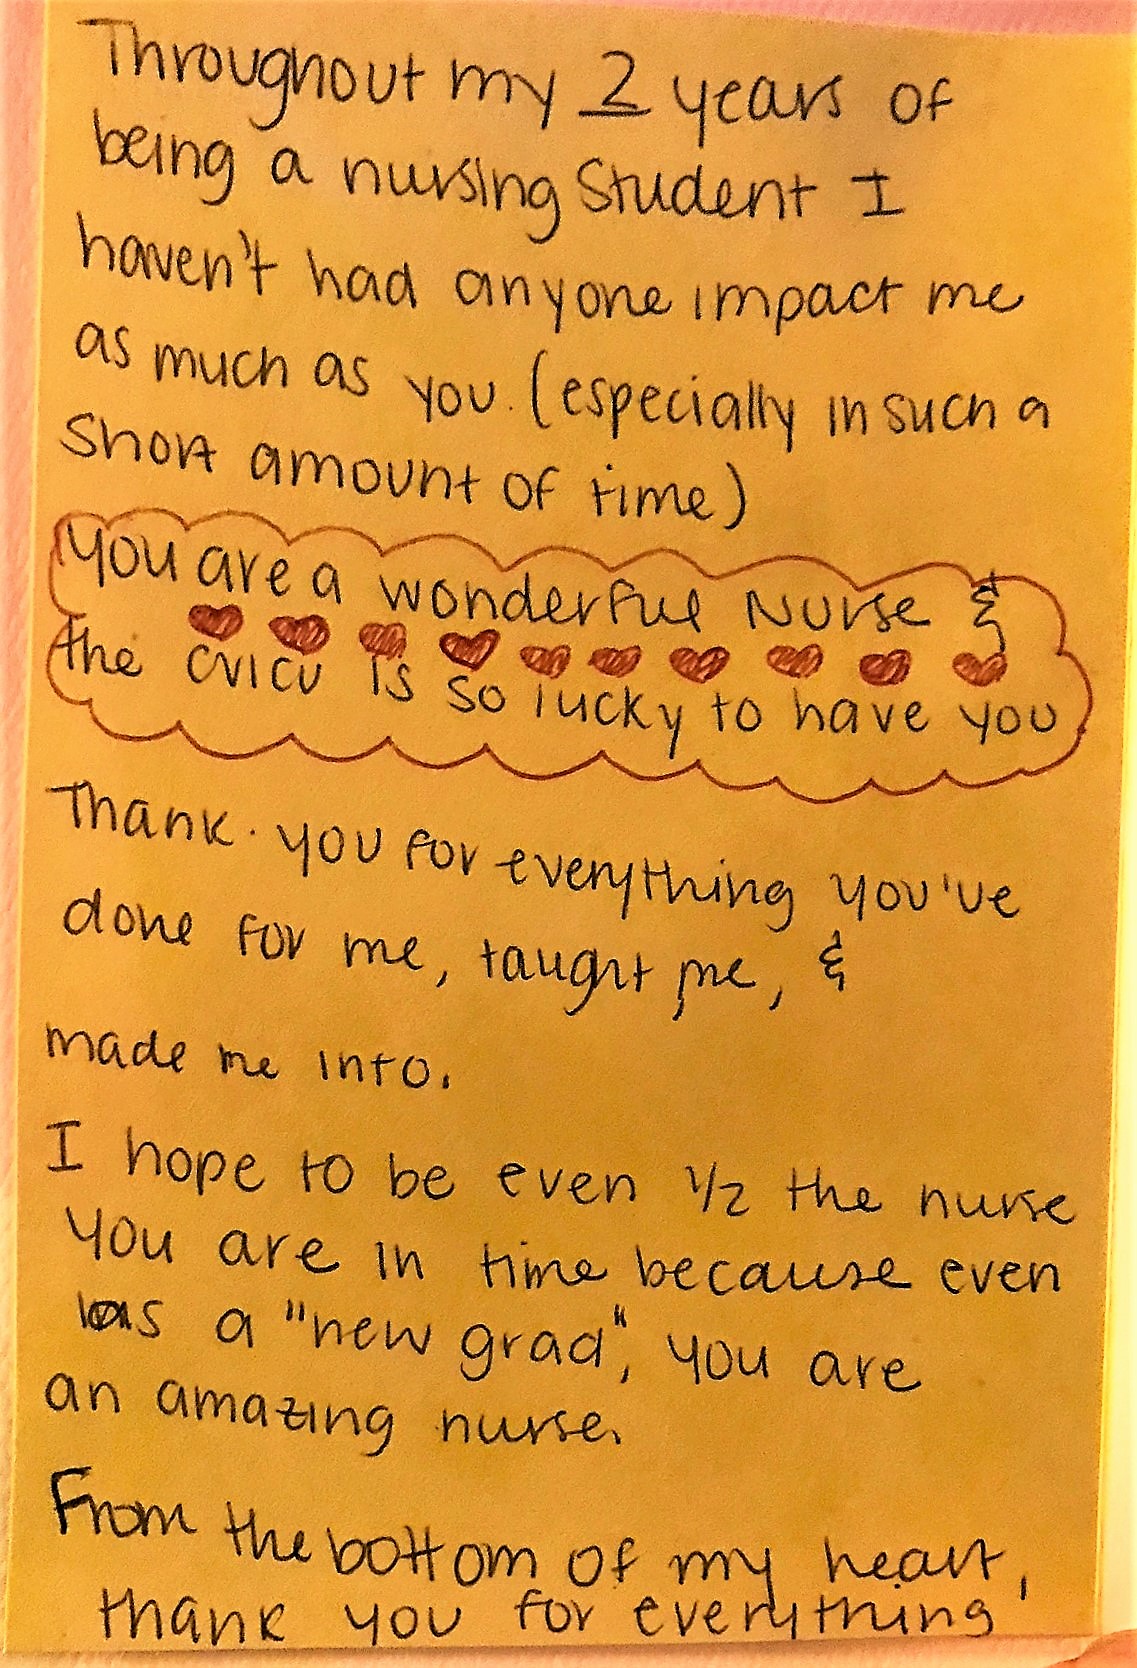 Throughout my 2 years of
being a nursing student I
haven't had anyone impact me
as much as you. (especially in such a
short amount of time)
you are a wonderful Nurse &
the CVICU is so lucky to have you
Thank you for everything you've
done for me, taught me, &
made me into.
I hope to be even 1/2 the nurse
you are in time because even
as a "new grad", you are
an amazing nurse.
From the bottom of my heart,
thank you for everything